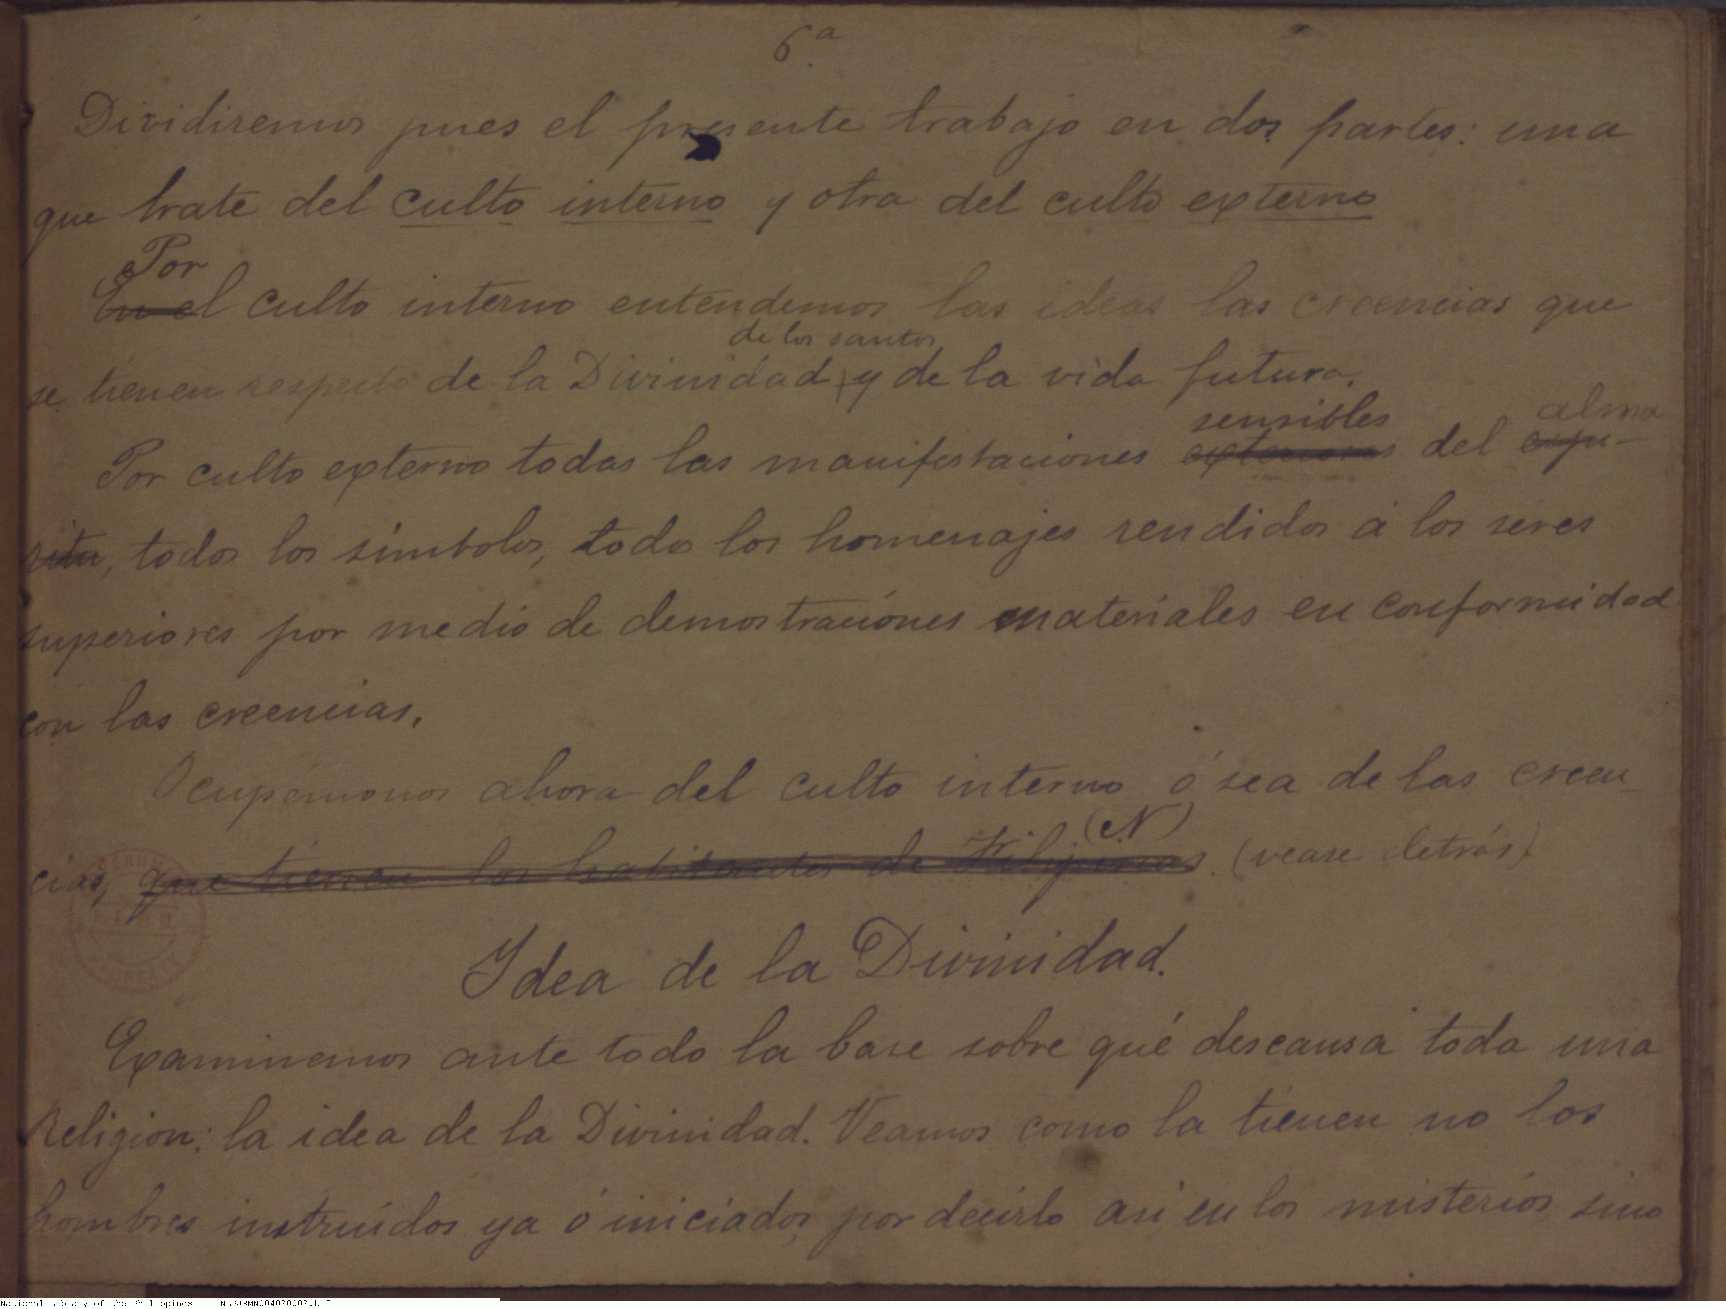 6.a
Dividiremos pues el presente trabajo en dos partes: una
que trate del culto interno y otra del culto externo
Por
En el culto interno entendemos las ideas las creencias que
de los santos
se tienen respecto de la Divinidad, y de la vida futura.
sensibles alma
Por culto externo todas las manifestaciones exteriores del espi-
ritu, todos los símbolos, todo los homenajes rendidos á los seres
superiores por medio de demostraciones materiales en conformidad
con las creencias.
Ocupémonos ahora del culto interno ó sea de las creen-
(N)
cias, que tienen los habitantes de Filipinas. (vease detrás)
Idea de la Divinidad.
Examinemos ante todo la base sobre qué descansa toda una
Religion: la idea de la Divinidad. Veamos como la tienen no los
hombres instruidos ya ó iniciados, por decirlo asi, en los misterios sino
National Library of the Philippines